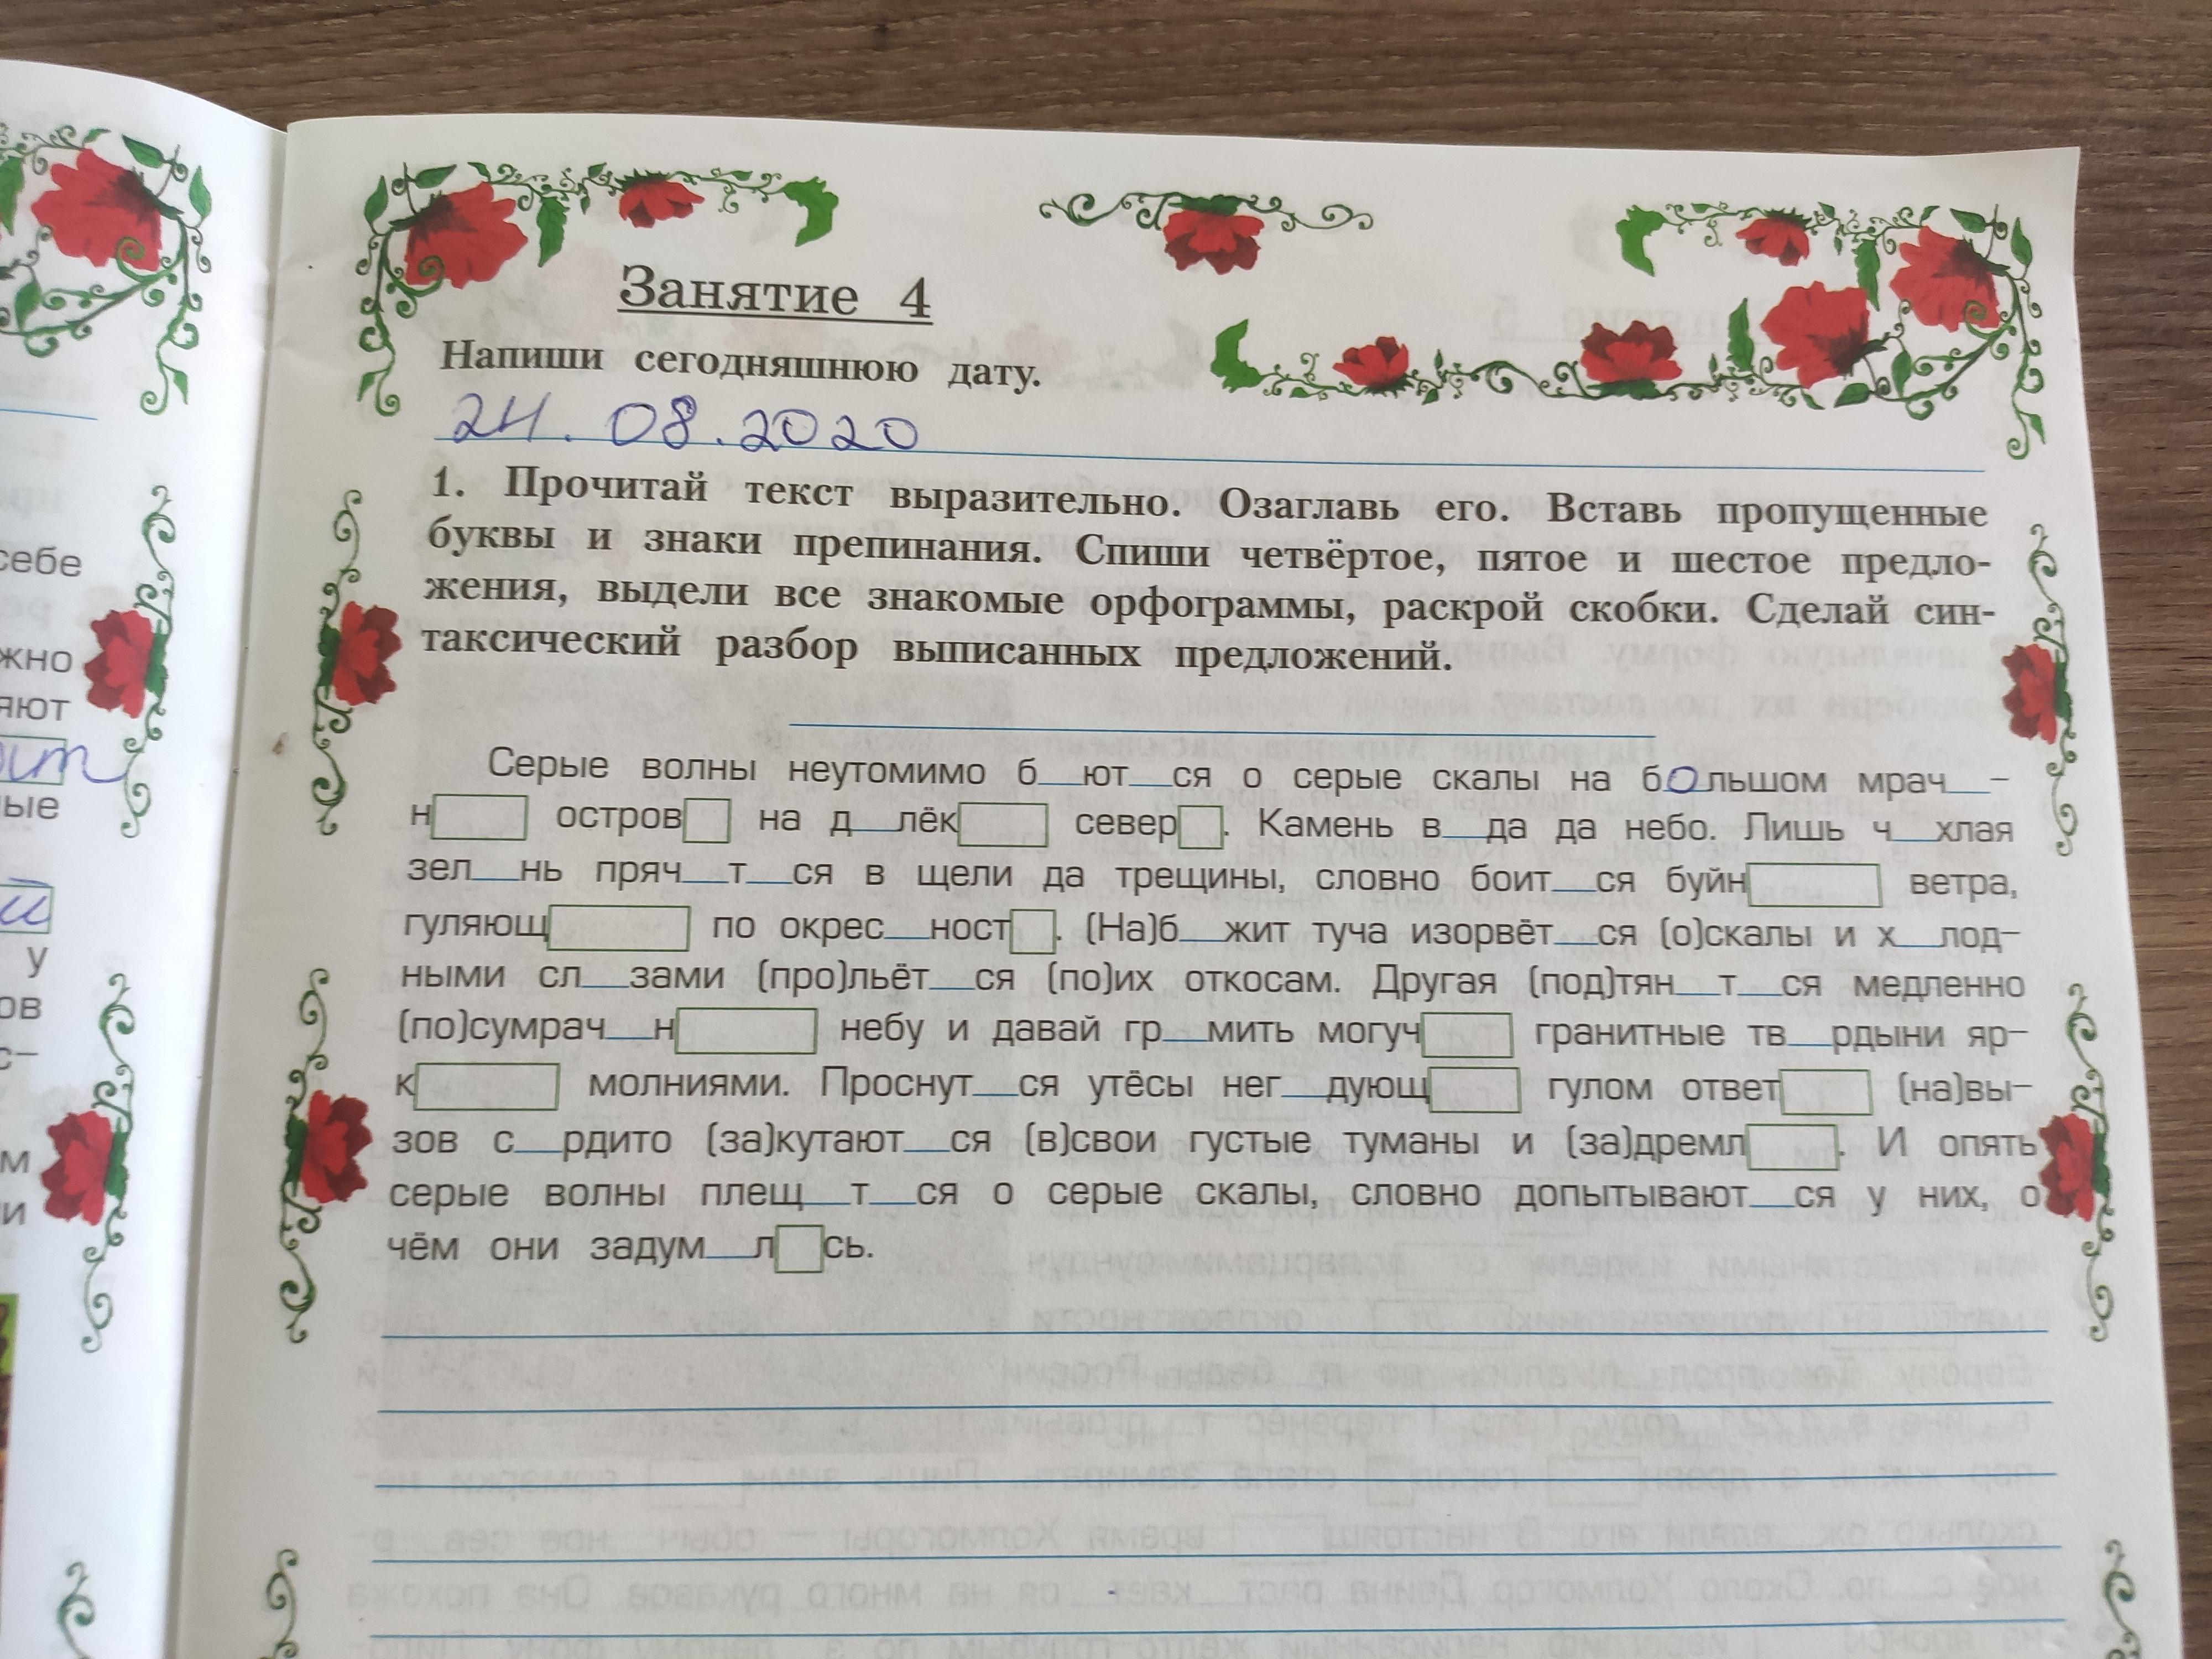 себе
жно
яют
ые
й
у
ов
с-
м
и
Занятие 4
Напиши сегодняшнюю дату.
24. 08. 2020
1. Прочитай текст выразительно. Озаглавь его. Вставь пропущенные
буквы и знаки препинания. Спиши четвёртое, пятое и шестое предло-
жения, выдели все знакомые орфограммы, раскрой скобки. Сделай син-
таксический разбор выписанных предложений.
Серые волны неутомимо б__ют__ся о серые скалы на большом мрач__-
н□ остров□ на д__лёк□ север□. Камень в__да да небо. Лишь ч__хлая
зел__нь пряч__т__ся в щели да трещины, словно боит__ся буйн□ ветра,
гуляющ□ по окрес__ност□. (На)б__жит туча изорвёт__ся (о)скалы и х__лод-
ными сл__зами (про)льёт__ся (по)их откосам. Другая (под)тян__т__ся медленно
(по)сумрач__н□ небу и давай гр__мить могуч□ гранитные тв__рдыни яр-
к□ молниями. Проснут__ся утёсы нег__дующ□ гулом ответ□ (на)вы-
зов с__рдито (за)кутают__ся (в)свои густые туманы и (за)дремл□. И опять
серые волны плещ__т__ся о серые скалы, словно допытывают__ся у них, о
чём они задум__л□сь.